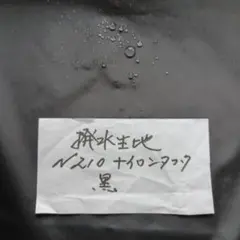 撥水生地
N210 ナイロンタフタ
黒